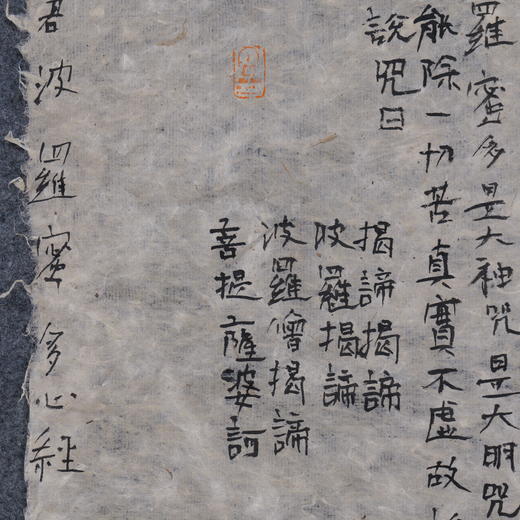 羅蜜多是大神咒是大明咒
能除一切苦真實不虛故
說咒曰
揭諦揭諦
波羅揭諦
波羅僧揭諦
菩提薩婆訶
若波羅蜜多心経